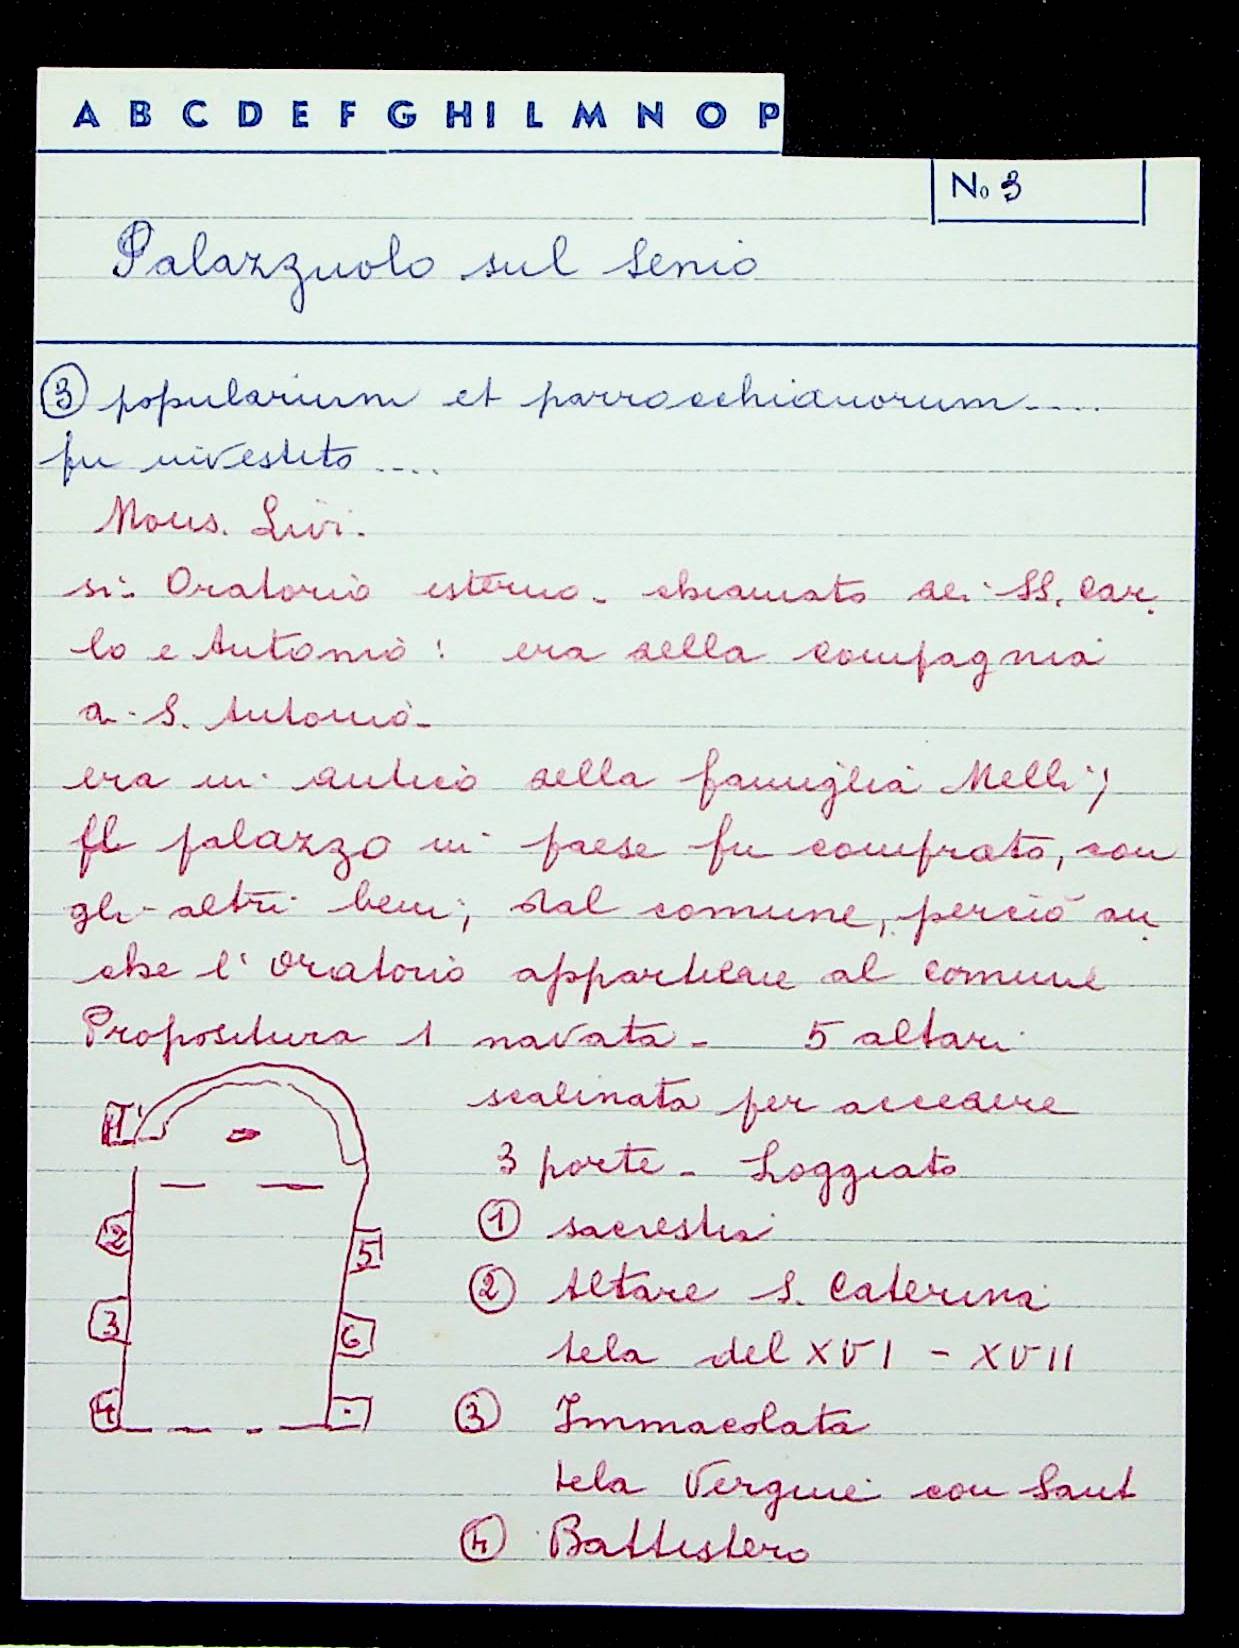 A B C D E F G H I L M N O P
No 3
Palazzuolo sul Senio
③ popularium et parrocchianorum....
fu investito....
Mons. Livi.
si- Oratorio esterno- chiamato dei SS. Car-
lo e Antonio: era della compagnia
di S. Antonio-
era in antico della famiglia Melli;
Il palazzo in paese fu comprato, con
gli altri beni, dal comune, perciò an-
che l'oratorio appartiene al comune
Propositura 1 navata- 5 altari
scalinata per accedere
3 porte- Loggiato
① sacrestia
② Altare S. Caterina
tela del XVI - XVII
③ Immacolata
tela Vergine con Sant
④ Battistero
1
2
5
3
6
4